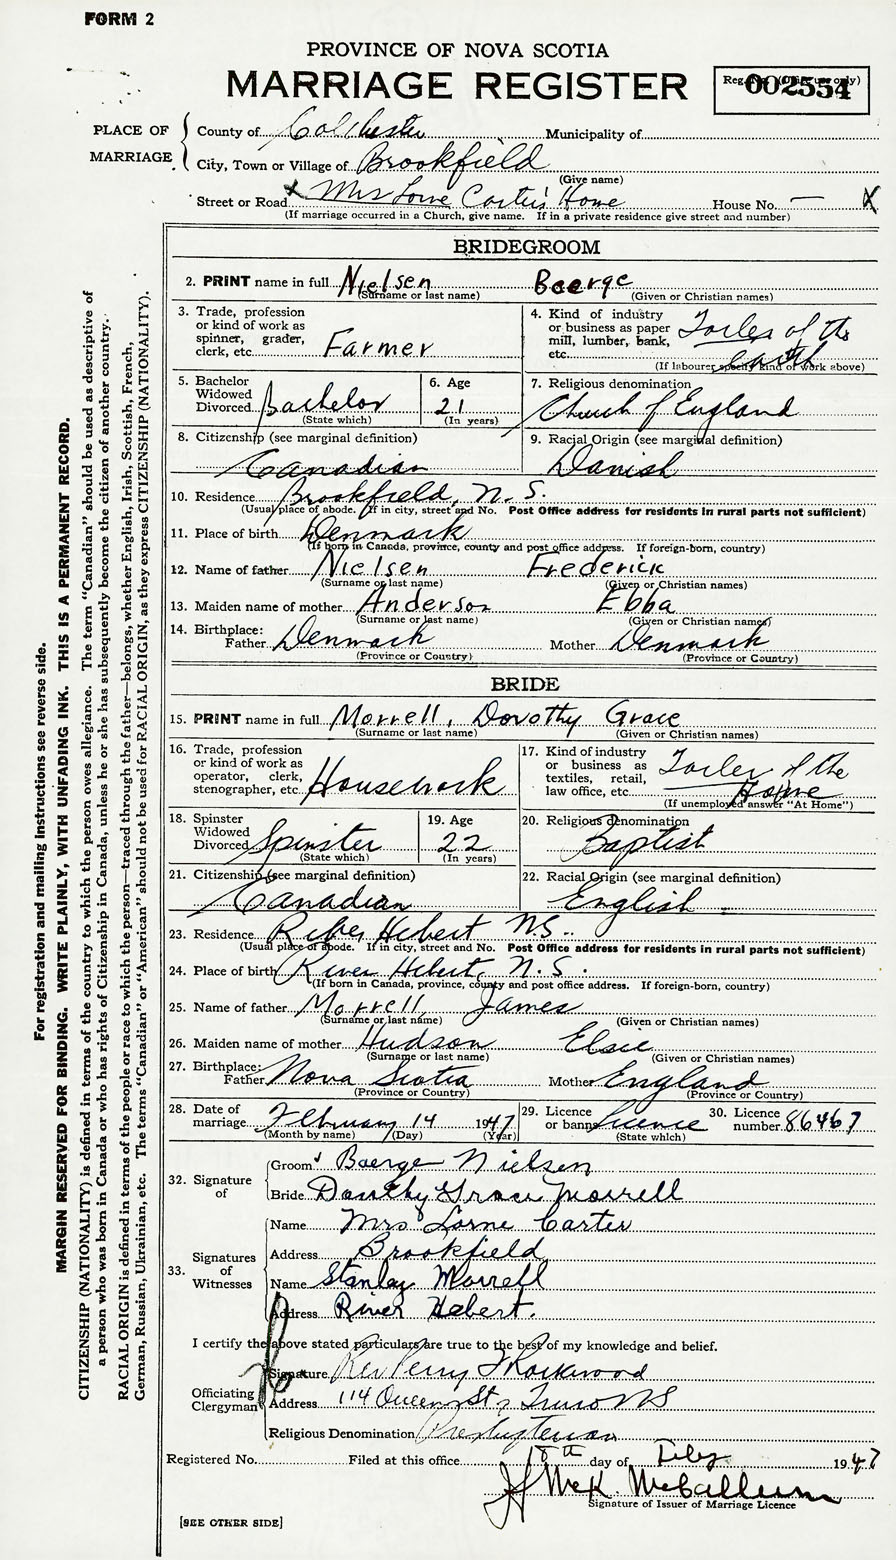 FORM 2
PROVINCE OF NOVA SCOTIA
MARRIAGE REGISTER
Reg. No. (Office use only)
002554
PLACE OF MARRIAGE
County of Colchester Municipality of
City, Town or Village of Brookfield
(Give name)
Street or Road x Mrs Lorne Carter's Home House No. — X
(If marriage occurred in a Church, give name. If in a private residence give street and number)
BRIDEGROOM
2. PRINT name in full Nielsen Boerge
(Surname or last name) (Given or Christian names)
3. Trade, profession or kind of work as spinner, grader, clerk, etc. Farmer
4. Kind of industry or business as paper mill, lumber, bank, etc. Toiler of the earth
(If labourer specify kind of work above)
5. Bachelor Widowed Divorced Bachelor
(State which)
6. Age 21
(In years)
7. Religious denomination
Church of England
8. Citizenship (see marginal definition)
Canadian
9. Racial Origin (see marginal definition)
Danish
10. Residence Brookfield, N.S.
(Usual place of abode. If in city, street and No. Post Office address for residents in rural parts not sufficient)
11. Place of birth Denmark
(If born in Canada, province, county and post office address. If foreign-born, country)
12. Name of father Nielsen Frederick
(Surname or last name) (Given or Christian names)
13. Maiden name of mother Anderson Ebba
(Surname or last name) (Given or Christian names)
14. Birthplace: Father Denmark Mother Denmark
(Province or Country) (Province or Country)
BRIDE
15. PRINT name in full Morrell, Dorothy Grace
(Surname or last name) (Given or Christian names)
16. Trade, profession or kind of work as operator, clerk, stenographer, etc. Housework
17. Kind of industry or business as textiles, retail, law office, etc. Toiler of the Home
(If unemployed answer "At Home")
18. Spinster Widowed Divorced Spinster
(State which)
19. Age 22
(In years)
20. Religious denomination
Baptist
21. Citizenship (see marginal definition)
Canadian
22. Racial Origin (see marginal definition)
English
23. Residence River Hebert N.S.
(Usual place of abode. If in city, street and No. Post Office address for residents in rural parts not sufficient)
24. Place of birth River Hebert, N.S.
(If born in Canada, province, county and post office address. If foreign-born, country)
25. Name of father Morrell, James
(Surname or last name) (Given or Christian names)
26. Maiden name of mother Hudson Elsie
(Surname or last name) (Given or Christian names)
27. Birthplace: Father Nova Scotia Mother England
(Province or Country) (Province or Country)
28. Date of marriage February 14 1947
(Month by name) (Day) (Year)
29. Licence or bann Licence
(State which)
30. Licence number 86467
32. Signature of
Groom Boerge Nielsen
Bride Dorothy Grace Morrell
33. Signatures of Witnesses
Name Mrs Lorne Carter
Address Brookfield
Name Stanley Morrell
Address River Hebert.
I certify the above stated particulars are true to the best of my knowledge and belief.
Officiating Clergyman
Signature Rev Perry Rockwood
Address 114 Queen St, Truro NS
Religious Denomination Presbyterian
Registered No. Filed at this office 18th day of Feby 1947
McK. McCallum
Signature of Issuer of Marriage Licence
[SEE OTHER SIDE]
For registration and mailing instructions see reverse side.
MARGIN RESERVED FOR BINDING. WRITE PLAINLY, WITH UNFADING INK. THIS IS A PERMANENT RECORD.
CITIZENSHIP (NATIONALITY) is defined in terms of the country to which the person owes allegiance. The term "Canadian" should be used as descriptive of
a person who was born in Canada or who has rights of Citizenship in Canada, unless he or she has subsequently become the citizen of another country.
RACIAL ORIGIN is defined in terms of the people or race to which the person—traced through the father—belongs, whether English, Irish, Scottish, French,
German, Russian, Ukrainian, etc. The terms "Canadian" or "American" should not be used for RACIAL ORIGIN, as they express CITIZENSHIP (NATIONALITY).